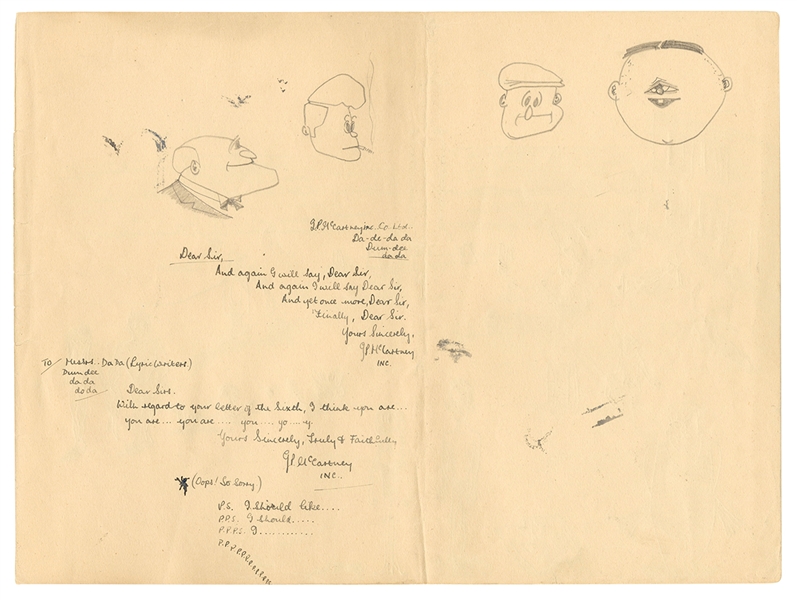 J.P. McCartney Inc. Co. Ltd.
Da-de-da da
Dum-dee
da da
Dear Sir,
And again I will say, Dear Sir,
And again I will say Dear Sir,
And yet once more, Dear Sir,
Finally, Dear Sir.
Yours Sincerely,
J P McCartney
INC.
TO/ Messrs. Da Da (Lyric Writers.)
Dum dee
da da
do da
Dear Sirs.
With regard to your letter of the Sixth, I think you are...
you are... you are .... you .... yo .... y.
Yours Sincerely, Truly & Faithfully
J P McCartney
INC..
(Oops! So sorry)
P.S. I should like....
P.P.S. I should.....
P.P.P.S. I............